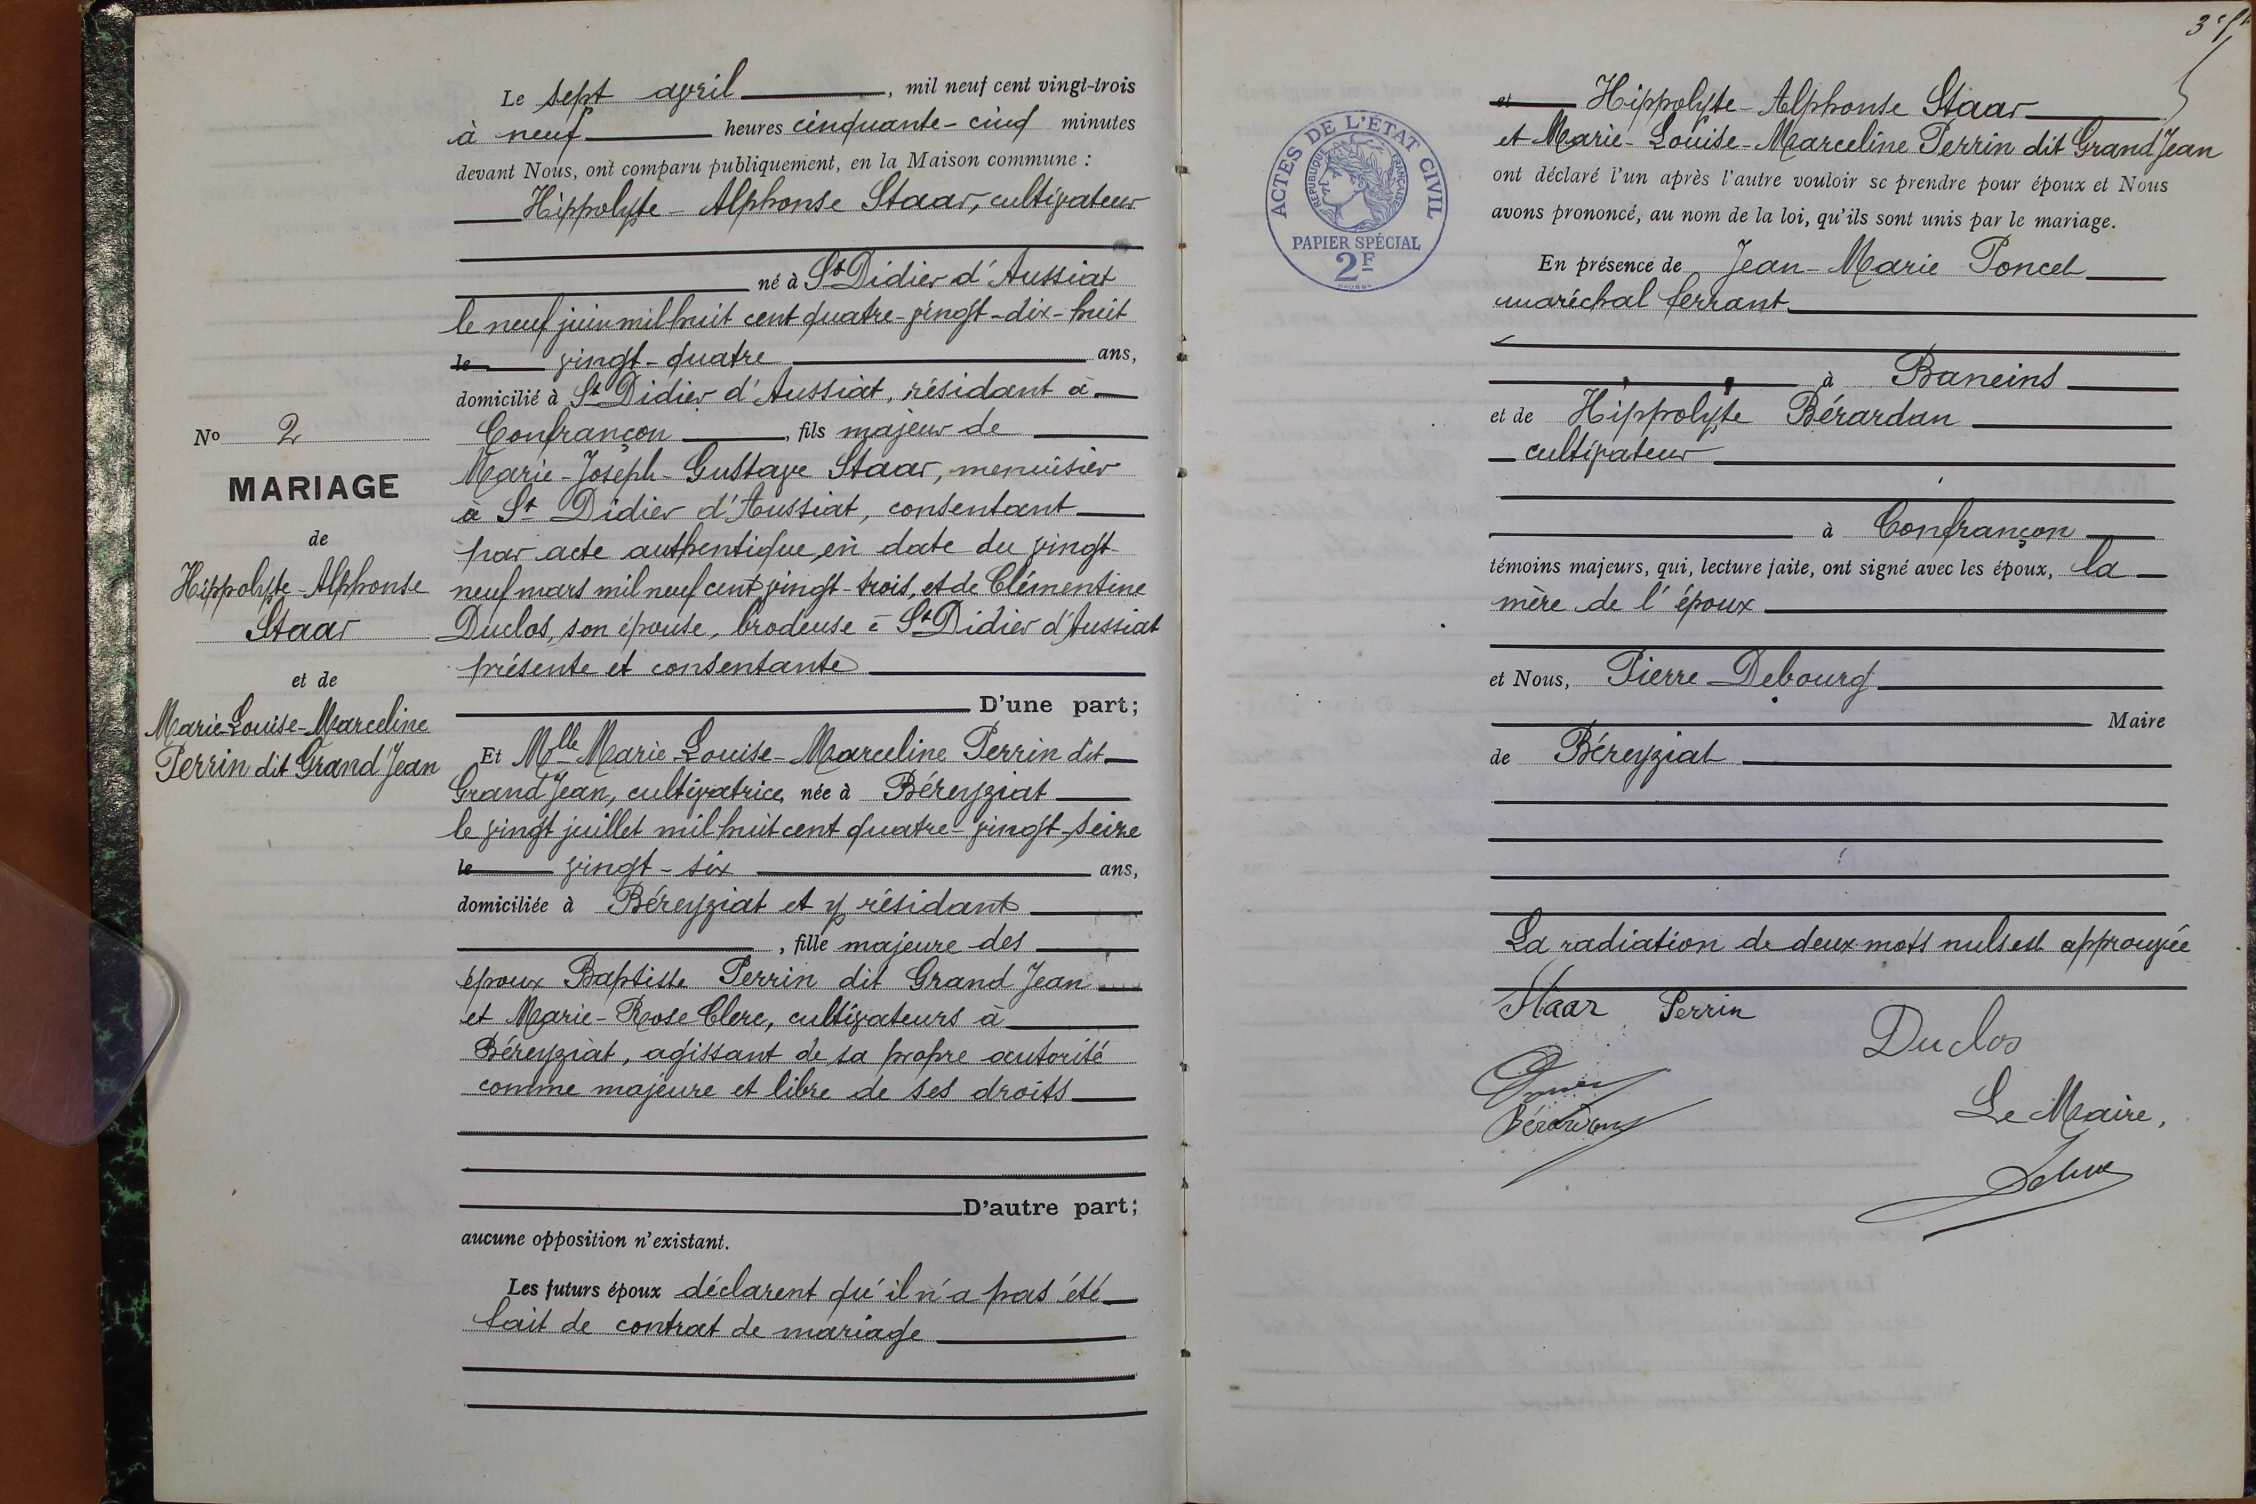 Le sept avril, mil neuf cent vingt-trois
à neuf heures cinquante-cinq minutes
devant Nous, ont comparu publiquement, en la Maison commune :
Hippolyte-Alphonse Staar, cultivateur
né à St Didier d'Aussiat
le neuf juin mil huit cent quatre-vingt-dix-huit
le vingt-quatre ans,
domicilié à St Didier d'Aussiat, résidant à
Confrançon, fils majeur de
Marie-Joseph-Gustave Staar, menuisier
à St Didier d'Aussiat, consentant
par acte authentique en date du vingt-
neuf mars mil neuf cent vingt-trois, et de Clémentine
Duclos, son épouse, brodeuse à St Didier d'Aussiat
présente et consentante
D'une part;
Et Mlle Marie-Louise-Marceline Perrin dit
Grand Jean, cultivatrice, née à Béreyziat
le vingt juillet mil huit cent quatre-vingt-seize
le vingt-six ans,
domiciliée à Béreyziat et y résidant
, fille majeure des
époux Baptiste Perrin dit Grand Jean
et Marie-Rose Clerc, cultivateurs à
Béreyziat, agissant de sa propre autorité
comme majeure et libre de ses droits
D'autre part;
aucune opposition n'existant.
Les futurs époux déclarent qu'il n'a pas été
fait de contrat de mariage
No 2
MARIAGE
de
Hippolyte-Alphonse
Staar
et de
Marie-Louise-Marceline
Perrin dit Grand Jean
ACTES DE L'ÉTAT CIVIL
RÉPUBLIQUE FRANÇAISE
PAPIER SPÉCIAL
2F
et Hippolyte-Alphonse Staar
et Marie-Louise-Marceline Perrin dit Grand Jean
ont déclaré l'un après l'autre vouloir se prendre pour époux et Nous
avons prononcé, au nom de la loi, qu'ils sont unis par le mariage.
En présence de Jean-Marie Poncet
maréchal ferrant
à Baneins
et de Hippolyte Bérardan
cultivateur
à Confrançon
témoins majeurs, qui, lecture faite, ont signé avec les époux, la
mère de l'époux
et Nous, Pierre Debourg
Maire
de Béreyziat
La radiation de deux mots nuls est approuvée
Staar Perrin
Duclos
Bérardan
Le Maire,